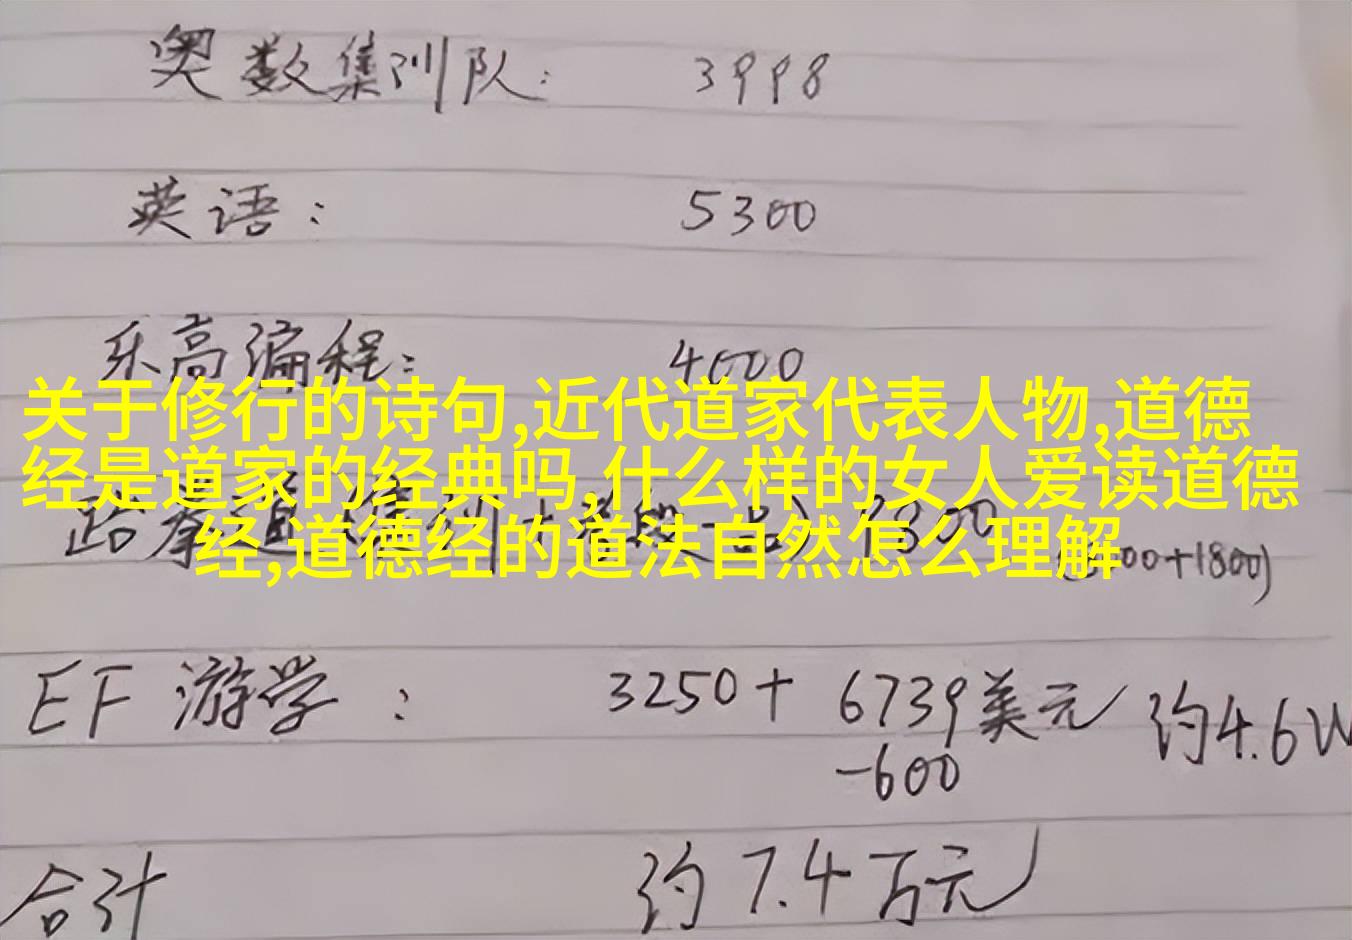 奥数集训队: 3998
英语: 5300
乐高编程: 4000
关于修行的诗句,近代道家代表人物,道德
经是道家的经典吗,什么样的女人爱读道德
经,道德经的道法自然怎么理解
跆拳道 00+1800)
EF 游学: 3250+ 6739美元 约4.6W
-600
合计 约7.4万元